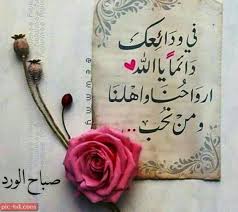 في ودائعك
دائماً يا الله
ارواحُنا واهلنَا
ومن نُحُب...
صباح الورد
pic-hd.com